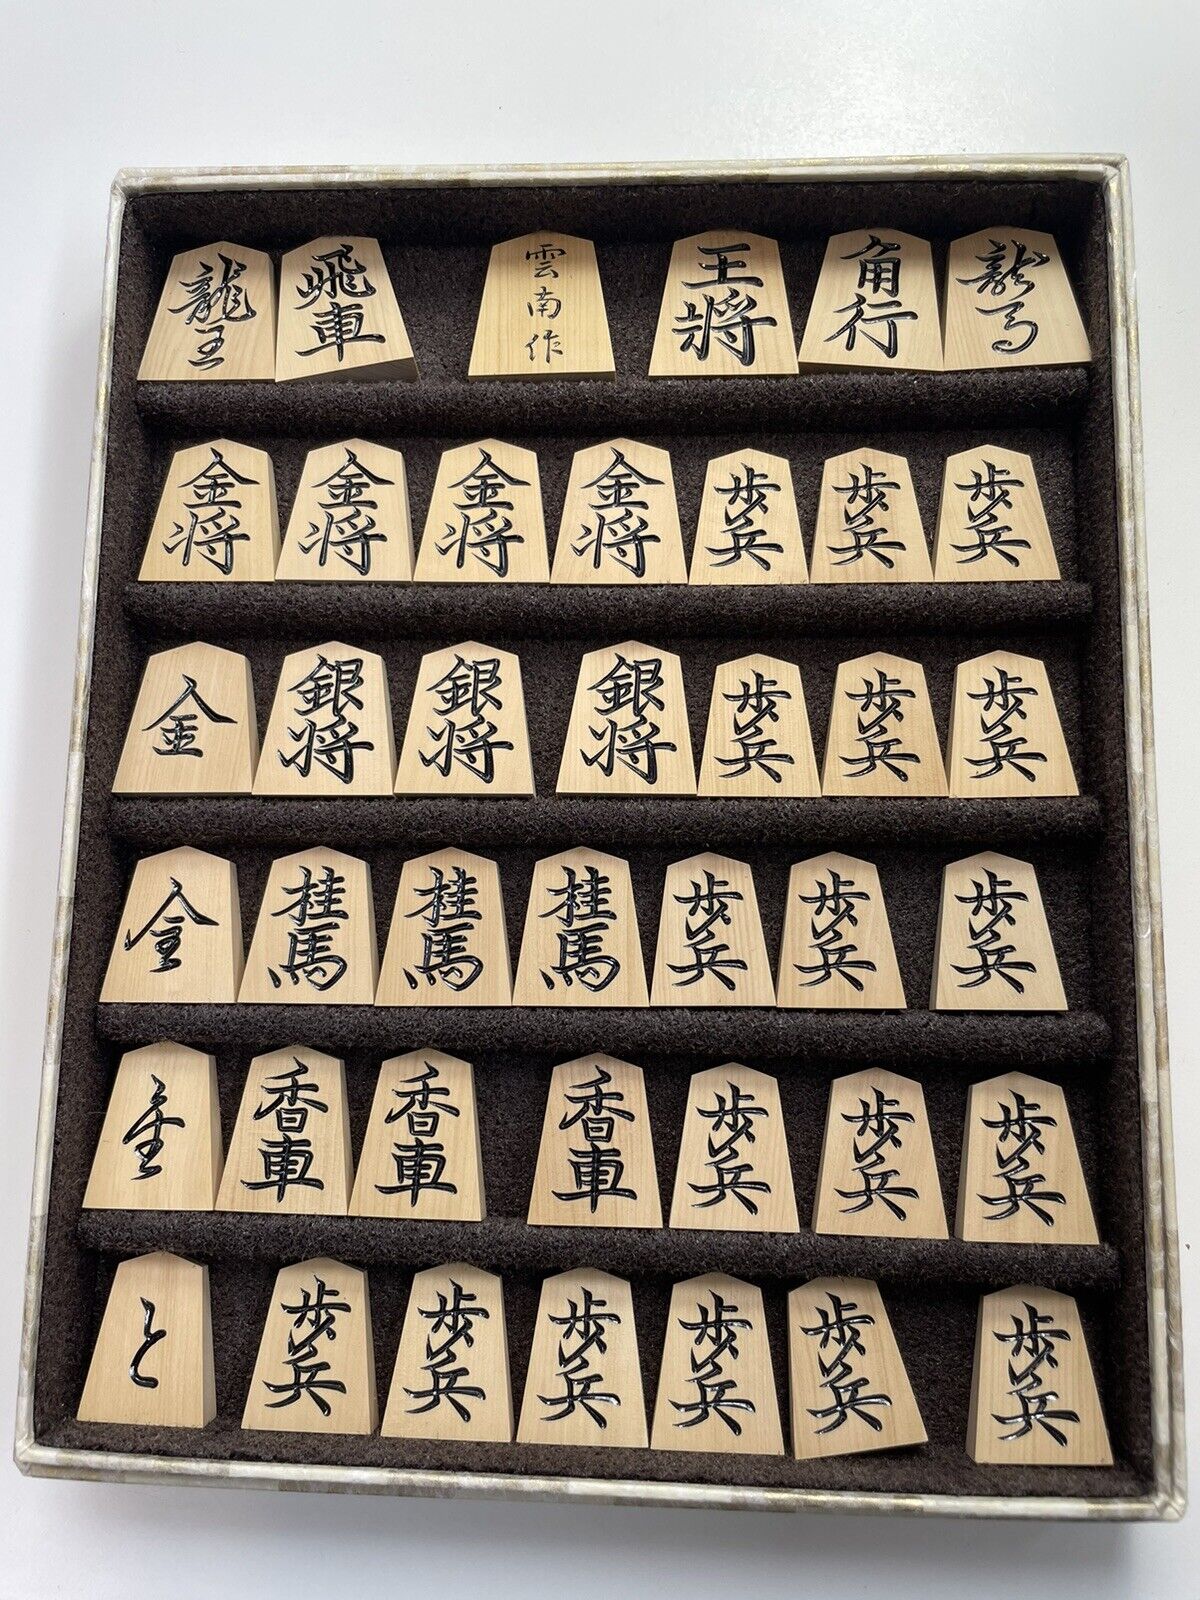 龍王 飛車 雲南作 王将 角行 龍馬
金将 金将 金将 金将 歩兵 歩兵 歩兵
金 銀将 銀将 銀将 歩兵 歩兵 歩兵
全 桂馬 桂馬 桂馬 歩兵 歩兵 歩兵
全 香車 香車 香車 歩兵 歩兵 歩兵
と 歩兵 歩兵 歩兵 歩兵 歩兵 歩兵